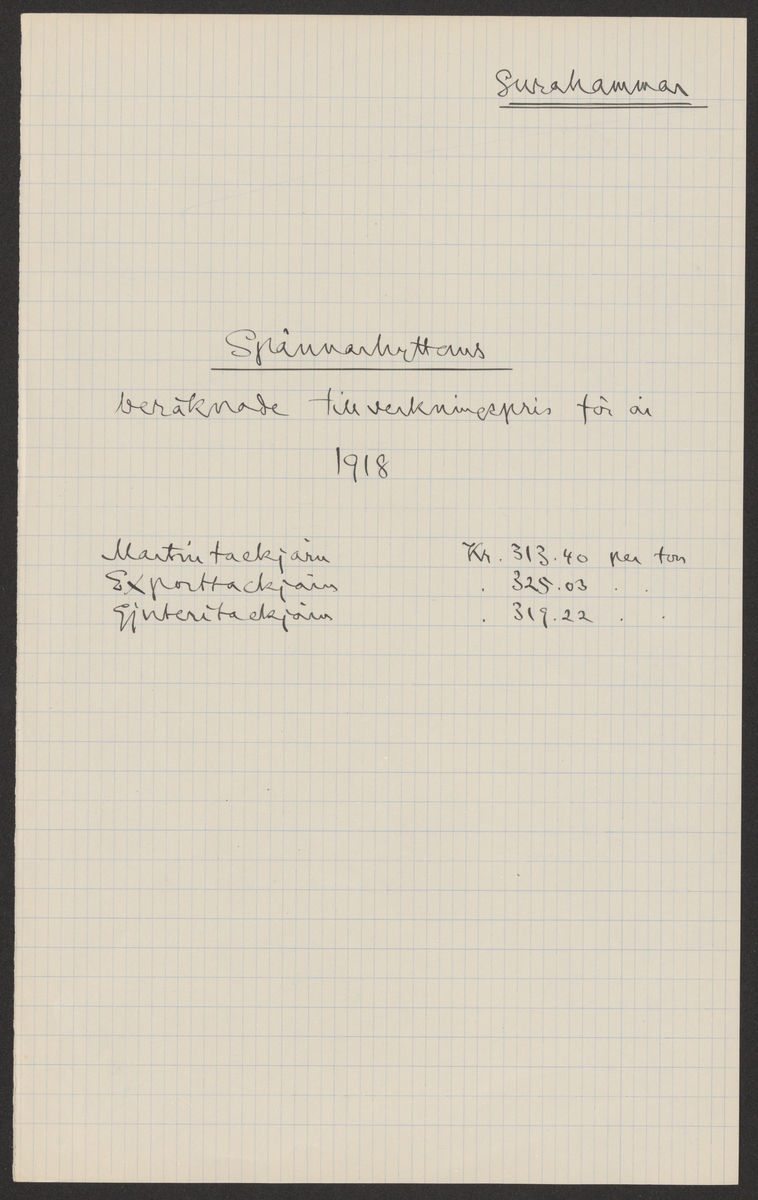 Surahammar
Spännarhyttans
beräknade tillverkningspris för år
1918
Martintackjärn Kr. 313.40 per ton
Exporttackjärn . 325.03 . .
Gjuteritackjärn . 319.22 . .